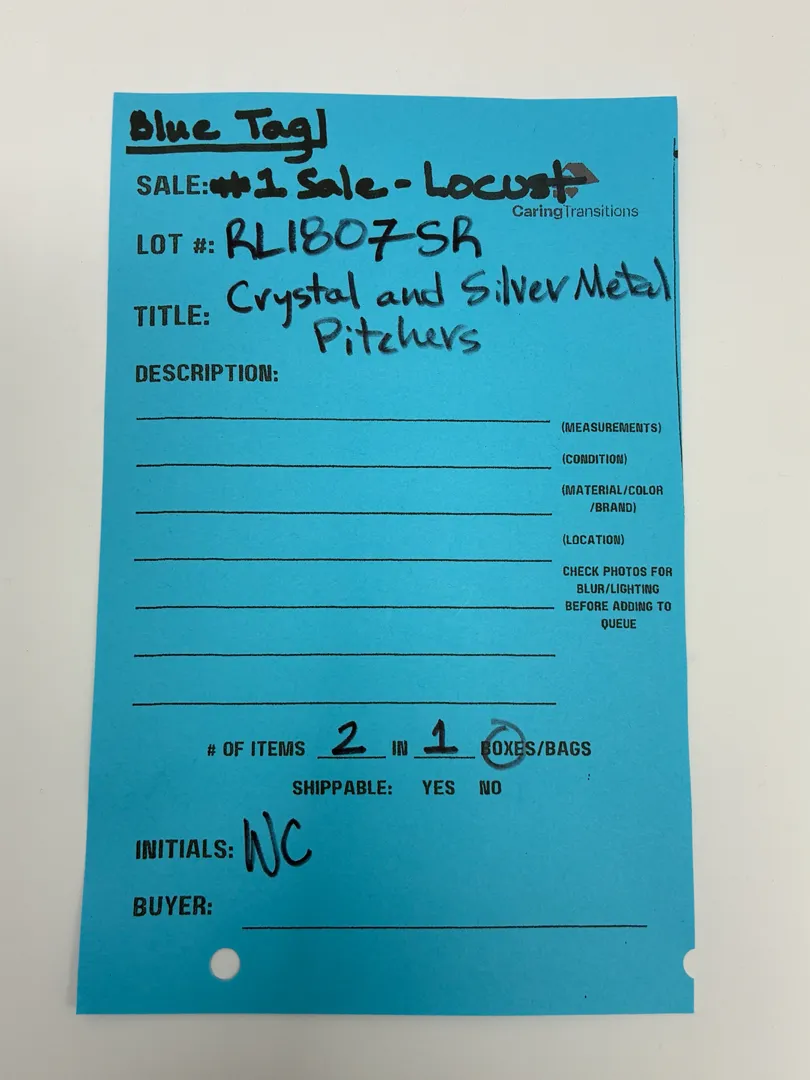 Blue Tag
SALE: #1 Sale - Locust
CaringTransitions
LOT #: RL1807SR
TITLE: Crystal and Silver Metal
Pitchers
DESCRIPTION:
(MEASUREMENTS)
(CONDITION)
(MATERIAL/COLOR
/BRAND)
(LOCATION)
CHECK PHOTOS FOR
BLUR/LIGHTING
BEFORE ADDING TO
QUEUE
# OF ITEMS 2 IN 1 BOXES/BAGS
SHIPPABLE: YES NO
INITIALS: WC
BUYER: